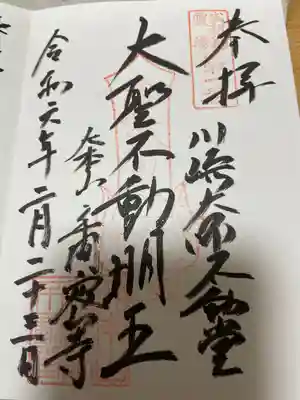 奉拝
川崎大師不動堂
大聖不動明王
大本山 寺
令和六年二月二十三日